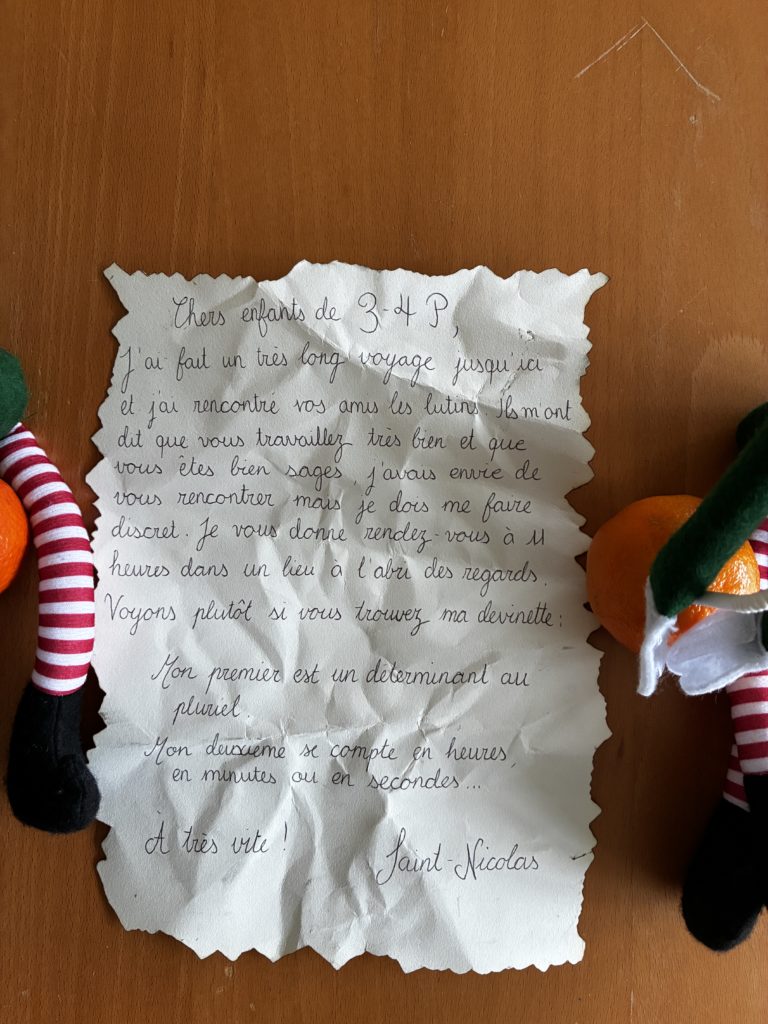 Chers enfants de 3-4 P,
J'ai fait un très long voyage jusqu'ici
et j'ai rencontré vos amis les lutins. Ils m'ont
dit que vous travaillez très bien et que
vous êtes bien sages, j'avais envie de
vous rencontrer mais je dois me faire
discret. Je vous donne rendez-vous à 11
heures dans un lieu à l'abri des regards.
Voyons plutôt si vous trouvez ma devinette :
Mon premier est un déterminant au
pluriel.
Mon deuxième se compte en heures,
en minutes ou en secondes...
À très vite !
Saint-Nicolas